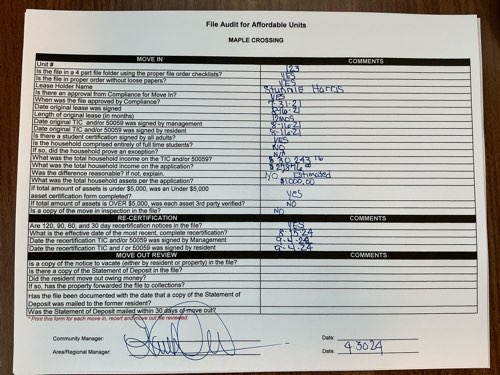 File Audit for Affordable Units
MAPLE CROSSING
MOVE IN COMMENTS
Unit # 123
Is the file in a 4 part file folder using the proper file order checklists? YES
Is the file in proper order without loose papers? YES
Lease Holder Name Harris
Is there an approval from Compliance for Move In? YES
When was the file approved by Compliance? 7-31-21
Date original lease was signed 8-16-21
Length of original lease (in months) 12mos
Date original TIC and/or 50059 was signed by management 8-16-21
Date original TIC and/or 50059 was signed by resident 8-16-21
Is there a student certification signed by all adults? YES
Is the household comprised entirely of full time students? NO
If so, did the household prove an exception? N/A
What was the total household income on the TIC and/or 50059?
What was the total household income on the application?
Was the difference reasonable? If not, explain. NO Estimated
What was the total household assets per the application? $1000.00
If total amount of assets is under $5,000, was an Under $5,000
asset certification form completed? YES
If total amount of assets is OVER $5,000, was each asset 3rd party verified? NO
Is a copy of the move in inspection in the file? NO
RE-CERTIFICATION COMMENTS
Are 120, 90, 60, and 30 day recertification notices in the file? YES
What is the effective date of the most recent, complete recertification?
Date the recertification TIC and/or 50059 was signed by Management 9-4-24
Date the recertification TIC and / or 50059 was signed by resident 9-4-24
MOVE OUT REVIEW COMMENTS
Is a copy of the notice to vacate (either by resident or property) in the file?
Is there a copy of the Statement of Deposit in the file?
Did the resident move out owing money?
If so, has the property forwarded the file to collections?
Has the file been documented with the date that a copy of the Statement of
Deposit was mailed to the former resident?
Was the Statement of Deposit mailed within 30 days of move out?
* Print this form for each move in, recert and move out file reviewed.
Community Manager: Date:
Area/Regional Manager: Date: 4.30.24